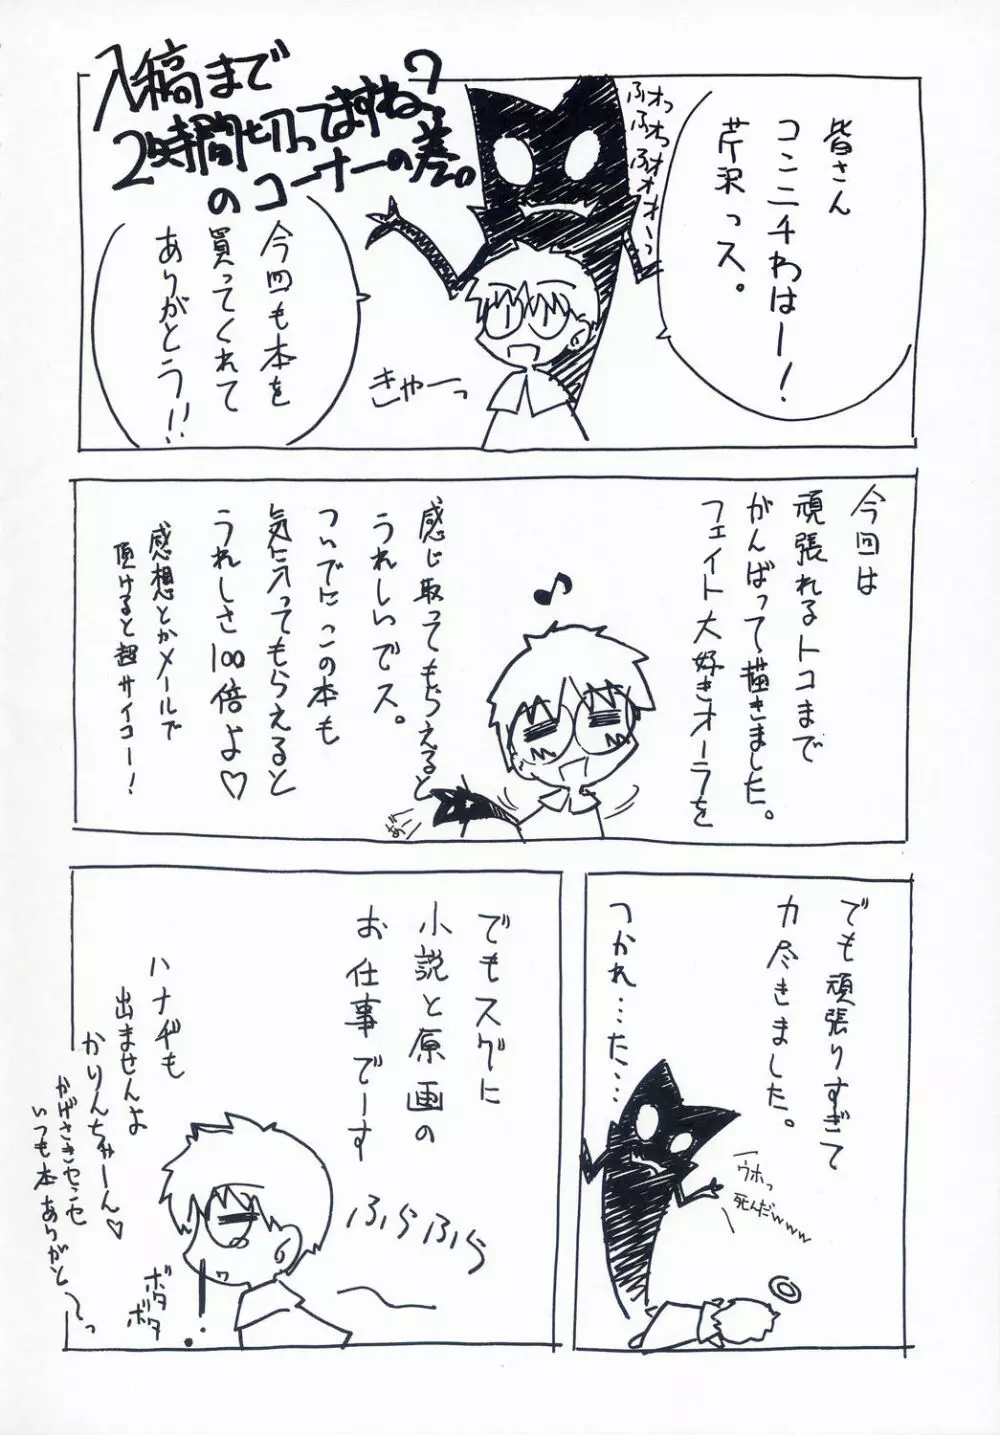 入稿まで
2時間切ってますね?
のコーナーの差。
皆さん
コンニチわはー!
芹沢っス。
ふオっ
ふおっ
ふおオオーっ
今回も本を
買ってくれて
ありがとう!!
きゃーっ
今回は
頑張れるトコまで
がんばって描きました。
フェイト大好きオーラを
感じ取ってもらえると
うれしいでス。
ついでにこの本も
気に入ってもらえると
うれしさ100倍よ♡
感想とかメールで
頂けると超サイコー!
でも頑張りすぎて
力尽きました。
つかれ…た…
ウホっ
死んだwww
でもスグに
小説と原画の
お仕事でーす
ハナヂも
出ませんよ
かりんちゃーん♡
かげさきセンセ
いつも本ありがと〜っ
ふらふら
ボタ
ボタ